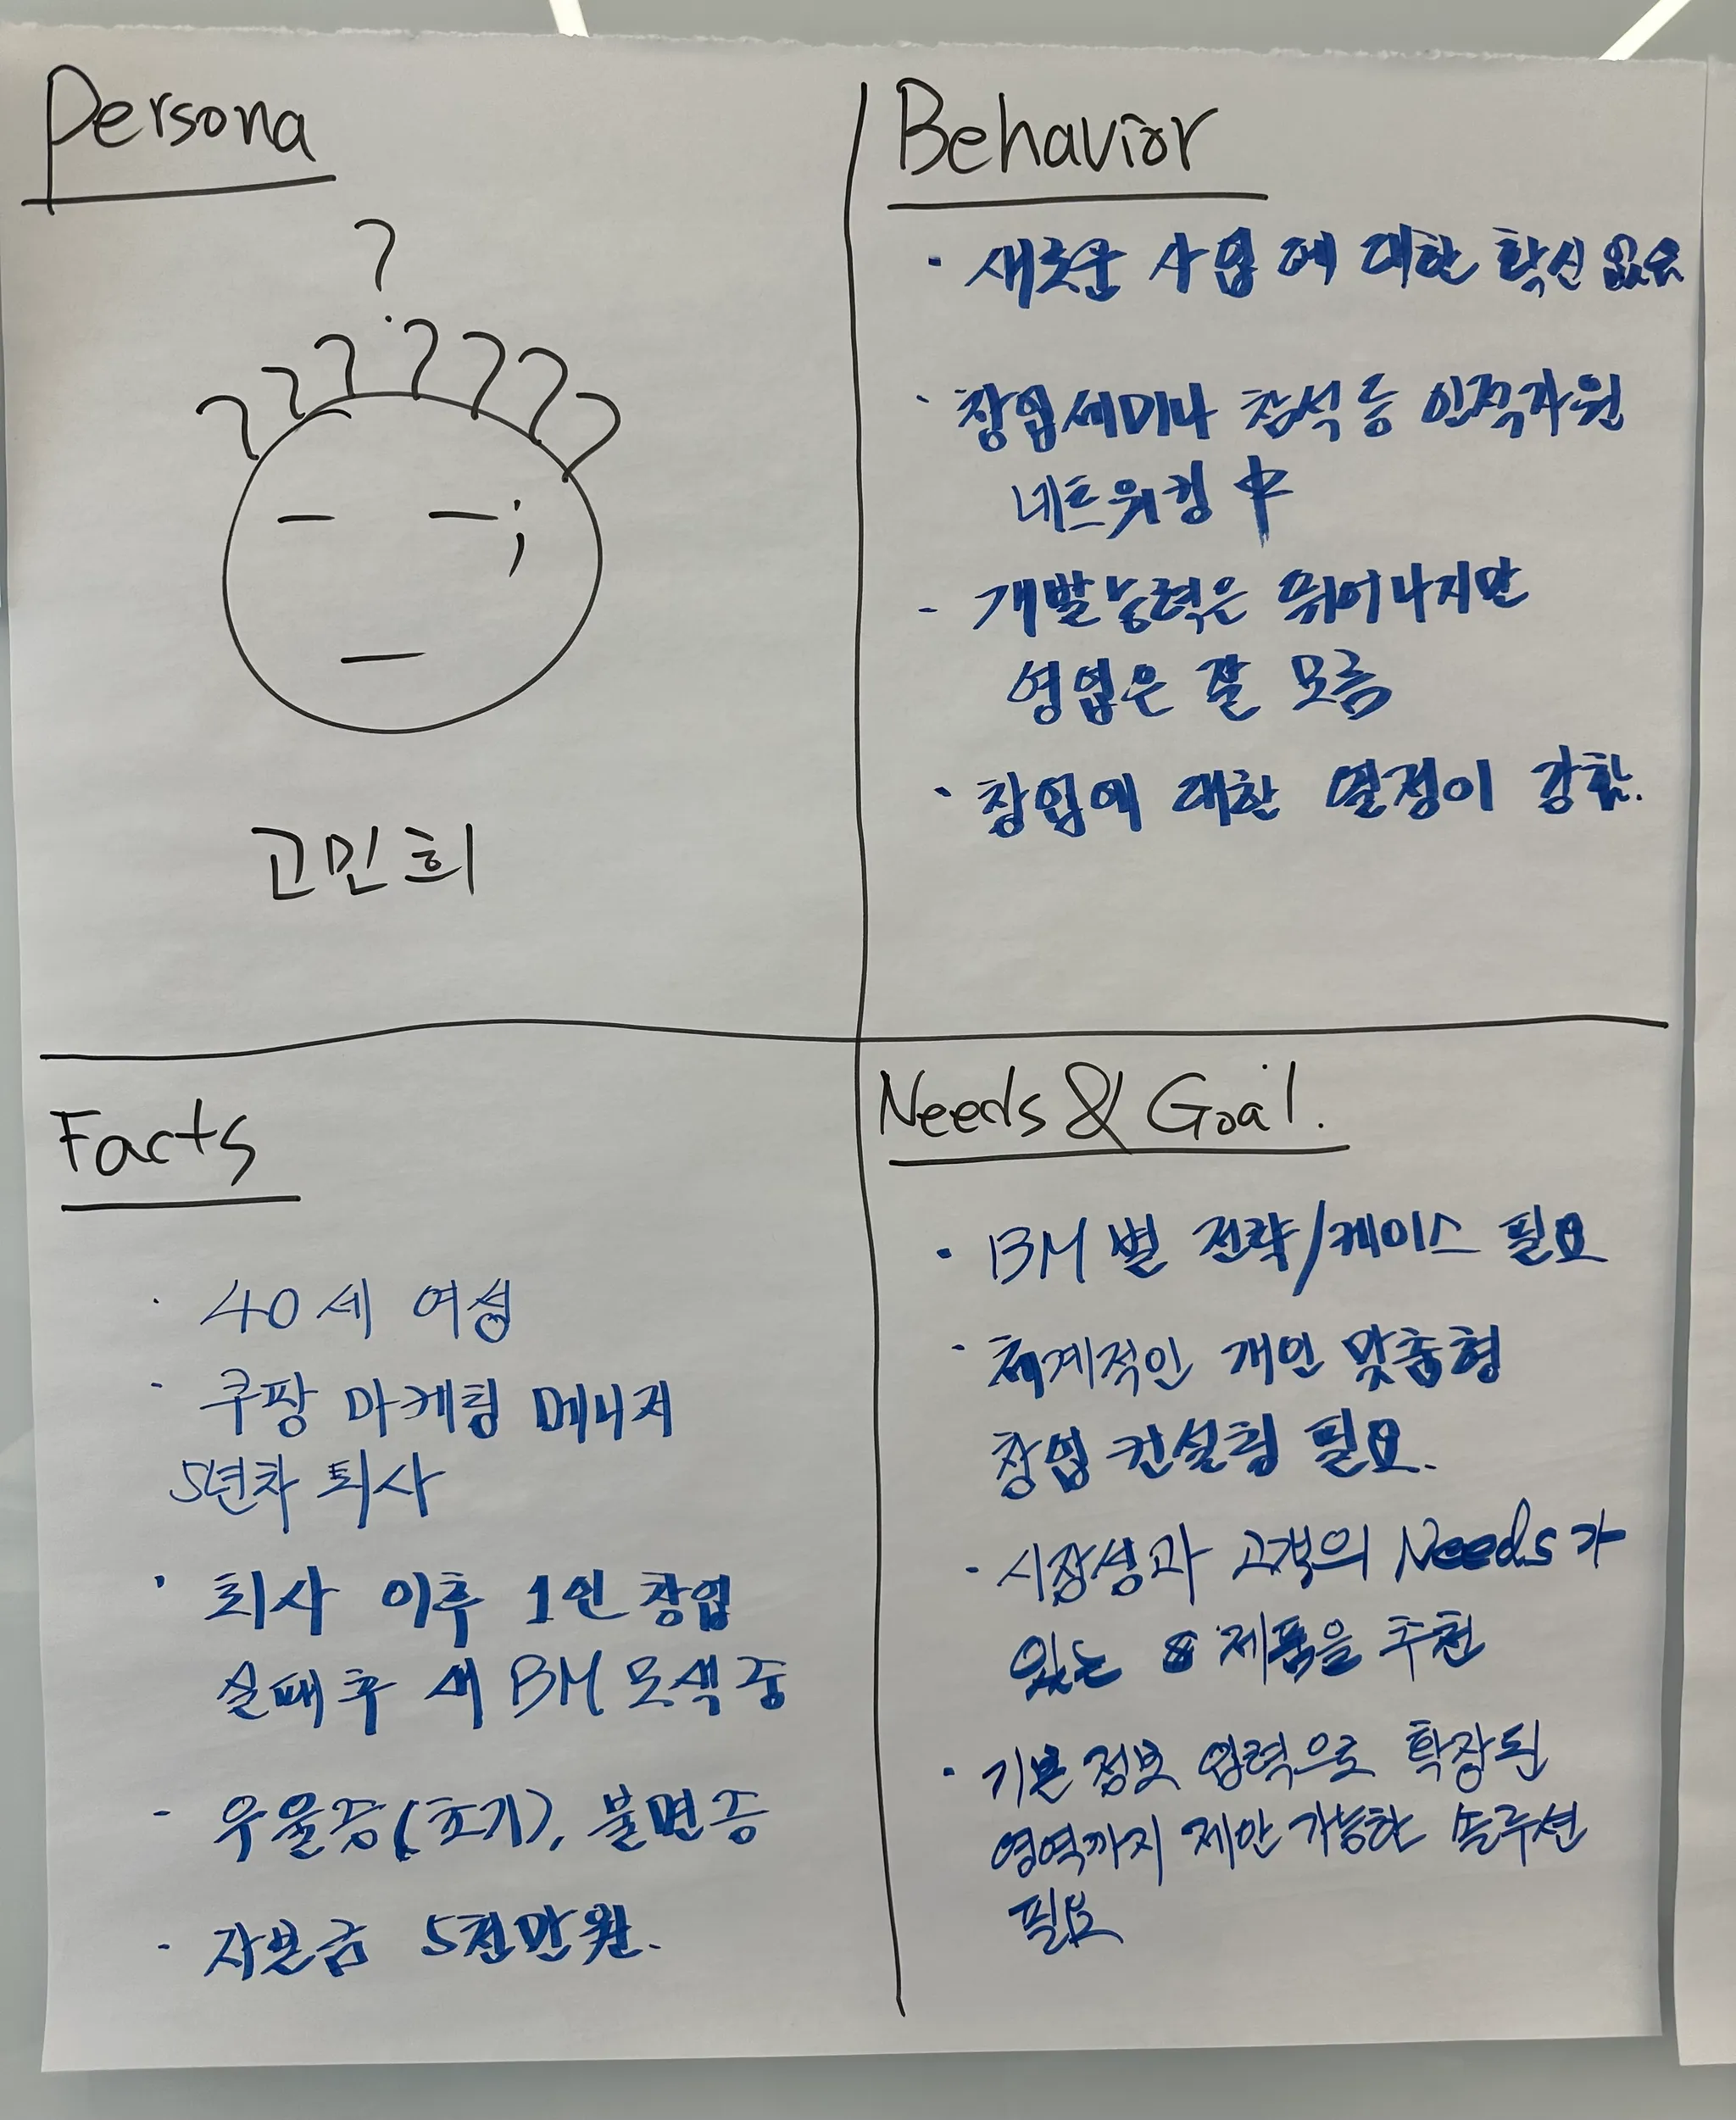 Persona
?
고민희
Behavior
· 새로운 사업에 대한 확신 없음
· 창업세미나 참석 등 인적자원
네트워킹 中
- 개발능력은 뛰어나지만
영업은 잘 모름
· 창업에 대한 열정이 강함.
Facts
· 40세 여성
· 쿠팡 마케팅 메니저
5년차 퇴사
· 퇴사 이후 1인 창업
실패 후 새 BM 모색 중
- 우울증(초기), 불면증
· 자본금 5천만원.
Needs & Goal.
· BM 별 전략/케이스 필요
· 체계적인 개인 맞춤형
창업 컨설팅 필요.
· 시장성과 고객의 Needs가
있는 제품을 추천
· 기본 정보 입력으로 확장된
영역까지 제안 가능한 솔루션
필요